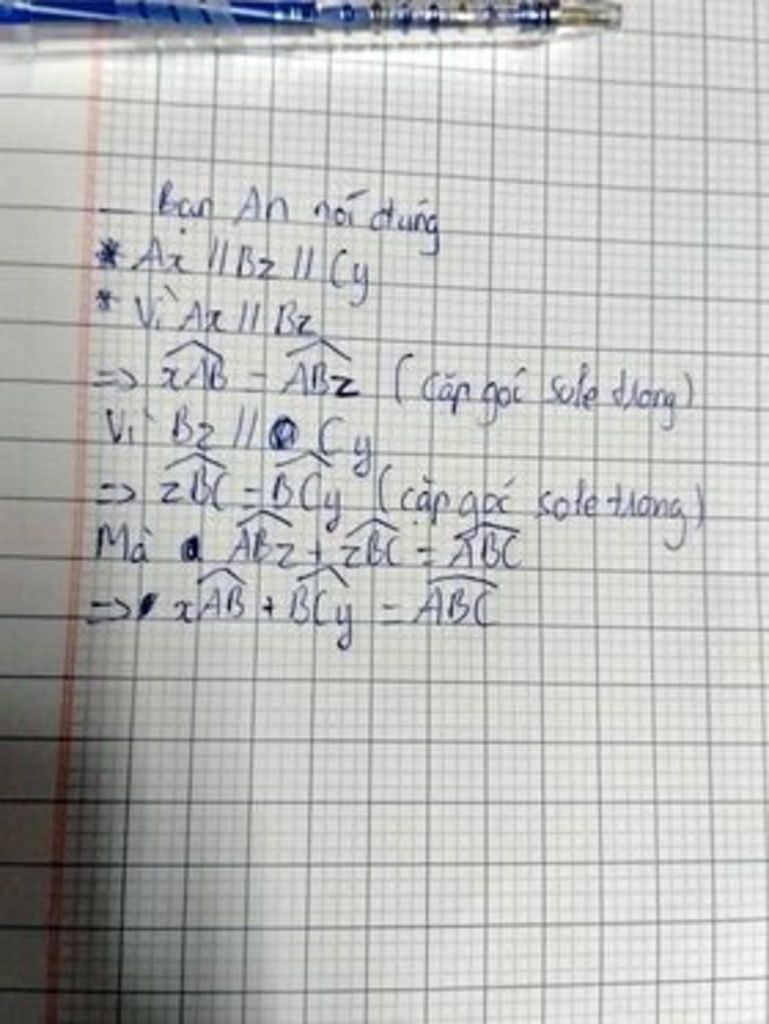 — Bạn An nói đúng
* Ax // Bz // Cy
* Vì Ax // Bz
=> xAB = ABz (cặp góc sole trong)
Vì Bz // Cy
=> zBC = BCy (cặp góc sole trong)
Mà ABz + zBC = ABC
=> xAB + BCy = ABC